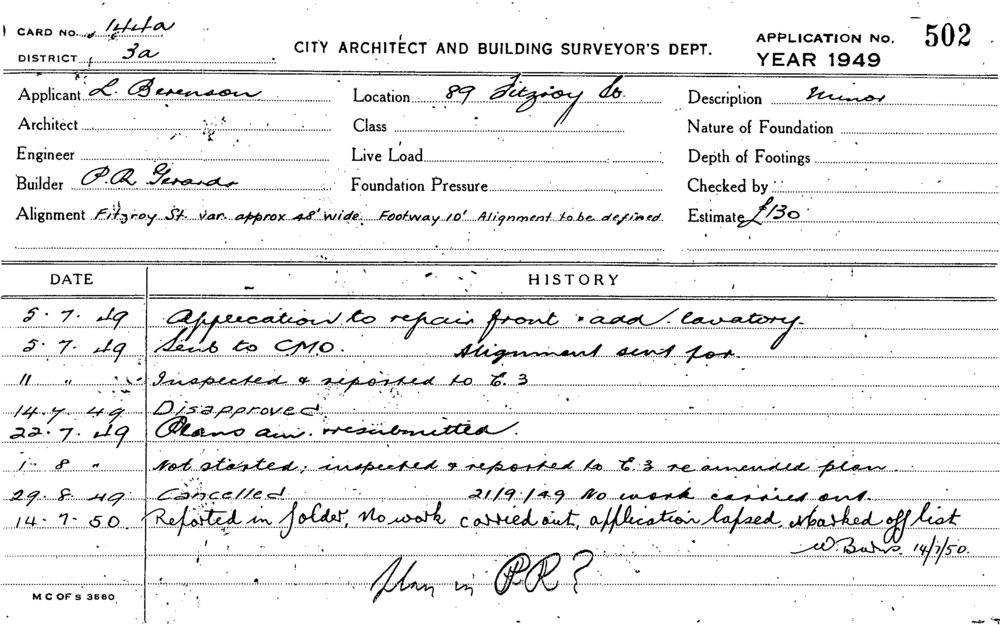 CARD NO. 144a
DISTRICT 3a
CITY ARCHITECT AND BUILDING SURVEYOR'S DEPT.
APPLICATION No. 502
YEAR 1949
Applicant L. Berenson
Location 89 Fitzroy St.
Description Minor
Architect
Class
Nature of Foundation
Engineer
Live Load
Depth of Footings
Builder P. R. Gerards
Foundation Pressure
Checked by
Alignment Fitzroy St. var. approx 48' wide. Footway 10' Alignment to be defined
Estimate £130
DATE HISTORY
5.7.49 Application to repair front & add lavatory.
5.7.49 Sent to CMO. Alignment sent for.
11 " Inspected & reported to C.3
14.7.49 Disapproved
22.7.49 Plans am. resubmitted.
1.8 " Not started; inspected & reported to C.3 re amended plan.
29.8.49 Cancelled 21/9/49 No work carried out.
14.7.50. Reported in folder, No work carried out, application lapsed, Marked off list
14/7/50.
plan in P.R?
M C OF S 3580